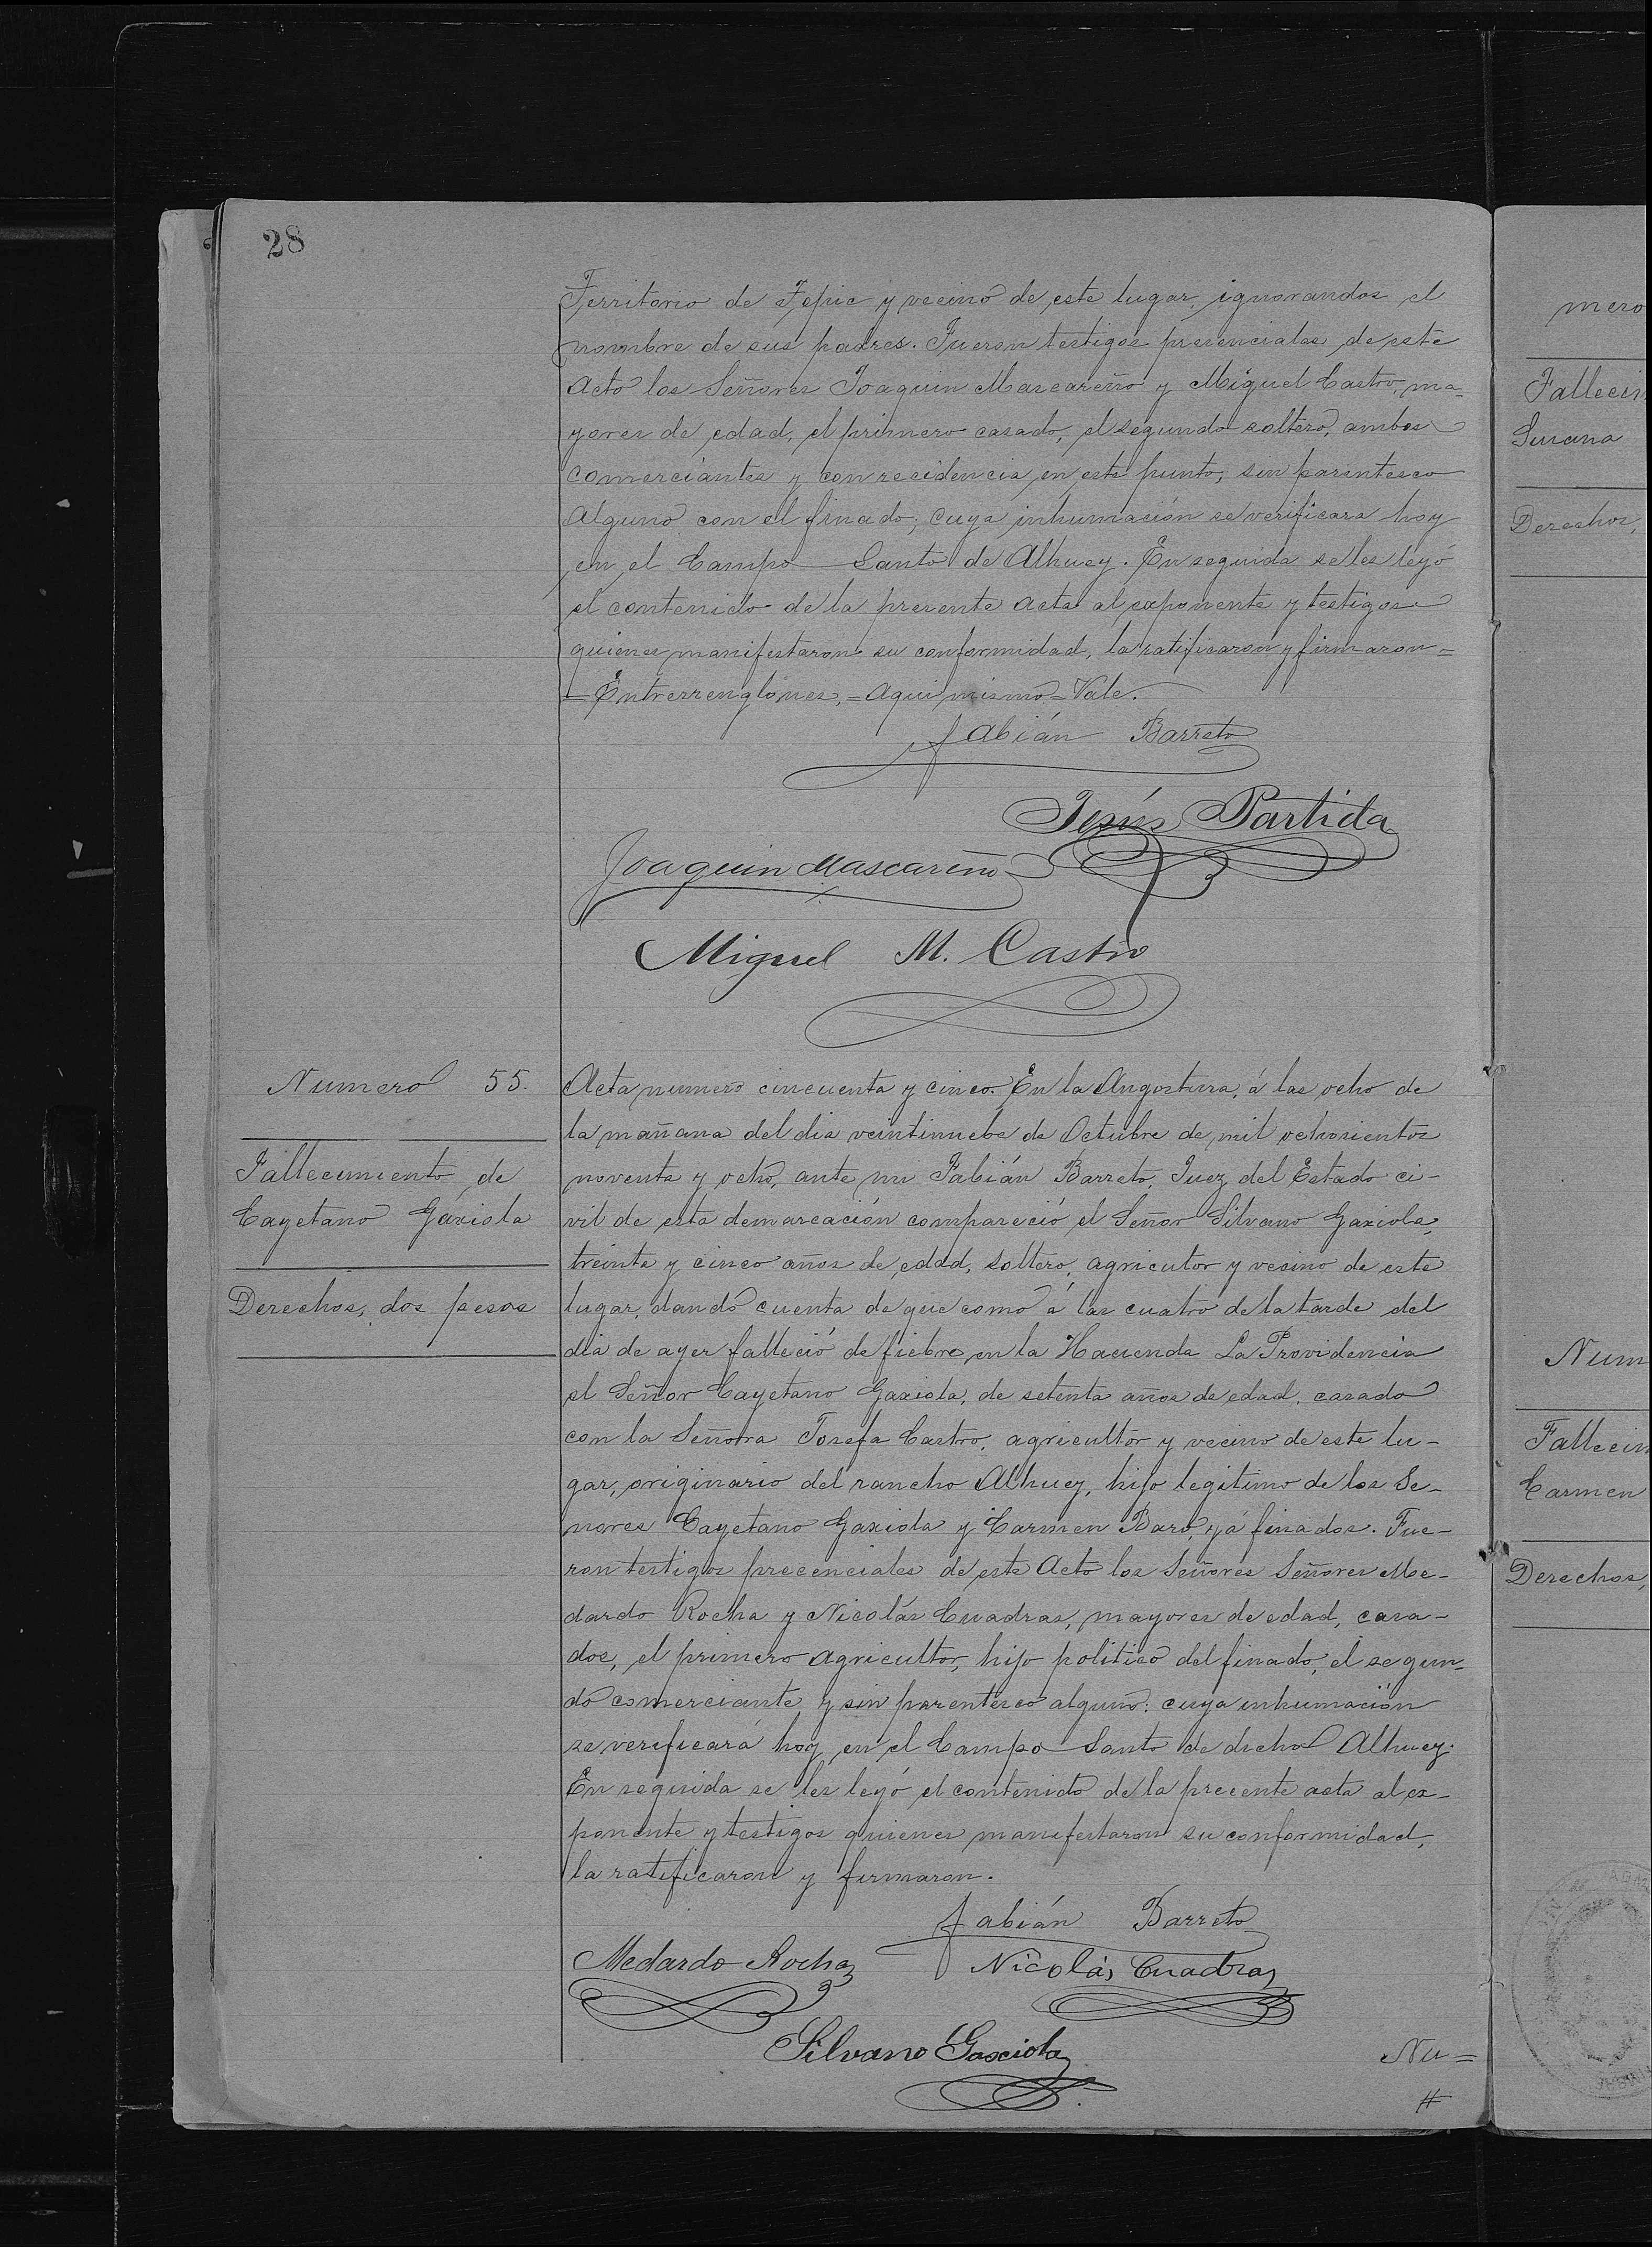 28
Territorio de Tepic y vecino de este lugar, ignorandos el
nombre de sus padres. Fueron testigos presenciales de este
Acto los Señores Joaquin Mascareño y Miguel Castro, ma=
yores de edad, el primero casado, el segundo soltero, ambos
comerciantes y con recidencia en este punto, sin parentesco
alguno con el finado; cuya inhumación se verificara hoy
en el Campo Santo de Alhuey. En seguida se les leyó
el contenido de la presente acta al exponente y testigos
quienes manifestaron su conformidad, la ratificaron y firmaron=
=Entrerrenglones,=aqui mismo=Vale.
Fabián Barreto
Jesús Partida
Joaquin Mascareño
Miguel M. Castro
Numero 55.
Fallecimiento de
Cayetano Gaxiola
Derechos, dos pesos
Acta numero cincuenta y cinco. En la Angostura, á las ocho de
la mañana del dia veintinuebe de Octubre de mil ochosientos
noventa y ocho, ante mi Fabián Barreto, Juez del Estado ci-
vil de esta demarcación compareció el Señor Silvano Gaxiola,
treinta y cinco años de edad, soltero, agricutor y vecino de este
lugar, dando cuenta de que como á las cuatro de la tarde del
dia de ayer falleció de fiebre en la Hacienda La Providencia
el Señor Cayetano Gaxiola, de setenta años de edad, casado
con la Señora Josefa Castro, agricultor y vecino de este lu-
gar, originario del rancho Alhuey, hijo legitimo de los Se-
nores Cayetano Gaxiola y Carmen Baro, yá finados. Fue-
ron testigos precenciales de este Acto los Señores Señores Me-
dardo Rocha y Nicolás Cuadras, mayores de edad, casa-
dos, el primero agricultor, hijo politico del finado, el segun-
do comerciante y sin parentesco alguno: cuya inhumación
se verificará hoy en el Campo Santo de dicho Alhuey.
En seguida se les leyó el contenido de la precente acta al ex-
ponente y testigos quienes manifestaron su conformidad,
la ratificaron y firmaron.
Fabián Barreto
Medardo Rocha
Nicolás Cuadras
Silvano Gaxiola
Nu=
#
mero
Fallecim
Susana
Derechos,
Num
Fallecim
Carmen
Derechos,